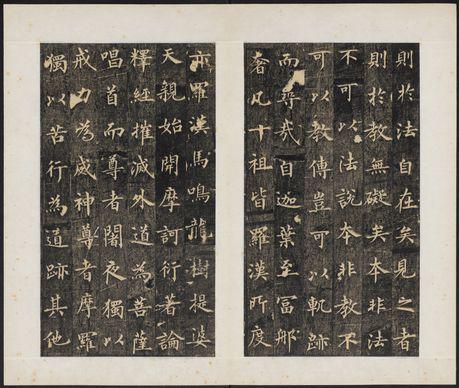 則於法自在矣見之者
則於教無礙矣本非法
不可以法說本非教不
可以教傳豈可以軌跡
而尋哉自迦葉至富那
奢凡十祖皆羅漢所度
亦羅漢馬鳴龍樹提婆
天親始開摩訶衍著論
釋經摧滅外道為菩薩
唱首而尊者闍夜獨以
戒力為威神尊者摩羅
獨以苦行為道跡其他